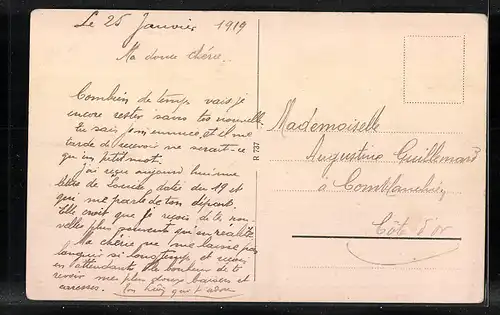 Le 25 Janvier 1919
Ma douce chérie.
Combien de temps vais-je
encore rester sans tes nouvelles
Tu sais, et il me
tarde de recevoir ne serait-ce
qu'un petit mot.
J'ai reçu aujourd'hui une
lettre de Louise datée du 19 et
qui me parle de ton départ.
Elle croit que je reçois de tes nou-
velles plus souvent qu'en réalité
Ma chérie ne me laisse pas
languir si longtemps, et reçois
en attendant le bonheur de te
revoir mes plus doux baisers et
caresses. ton qui t'adore
R 737
Mademoiselle
Augustine Guillemard
à Comblanchien
Côte d'or